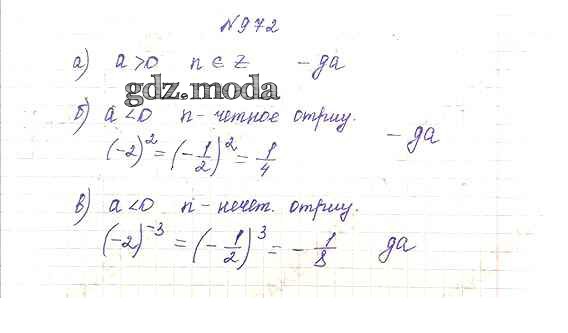 №972
а) a>0 n∈Z - да
gdz.moda
б) a<0 n - четное отриц.
(-2)² = (-1/2)² = 1/4 - да
в) a<0 n - нечет. отриц.
(-2)⁻³ = (-1/2)³ = -1/8 да